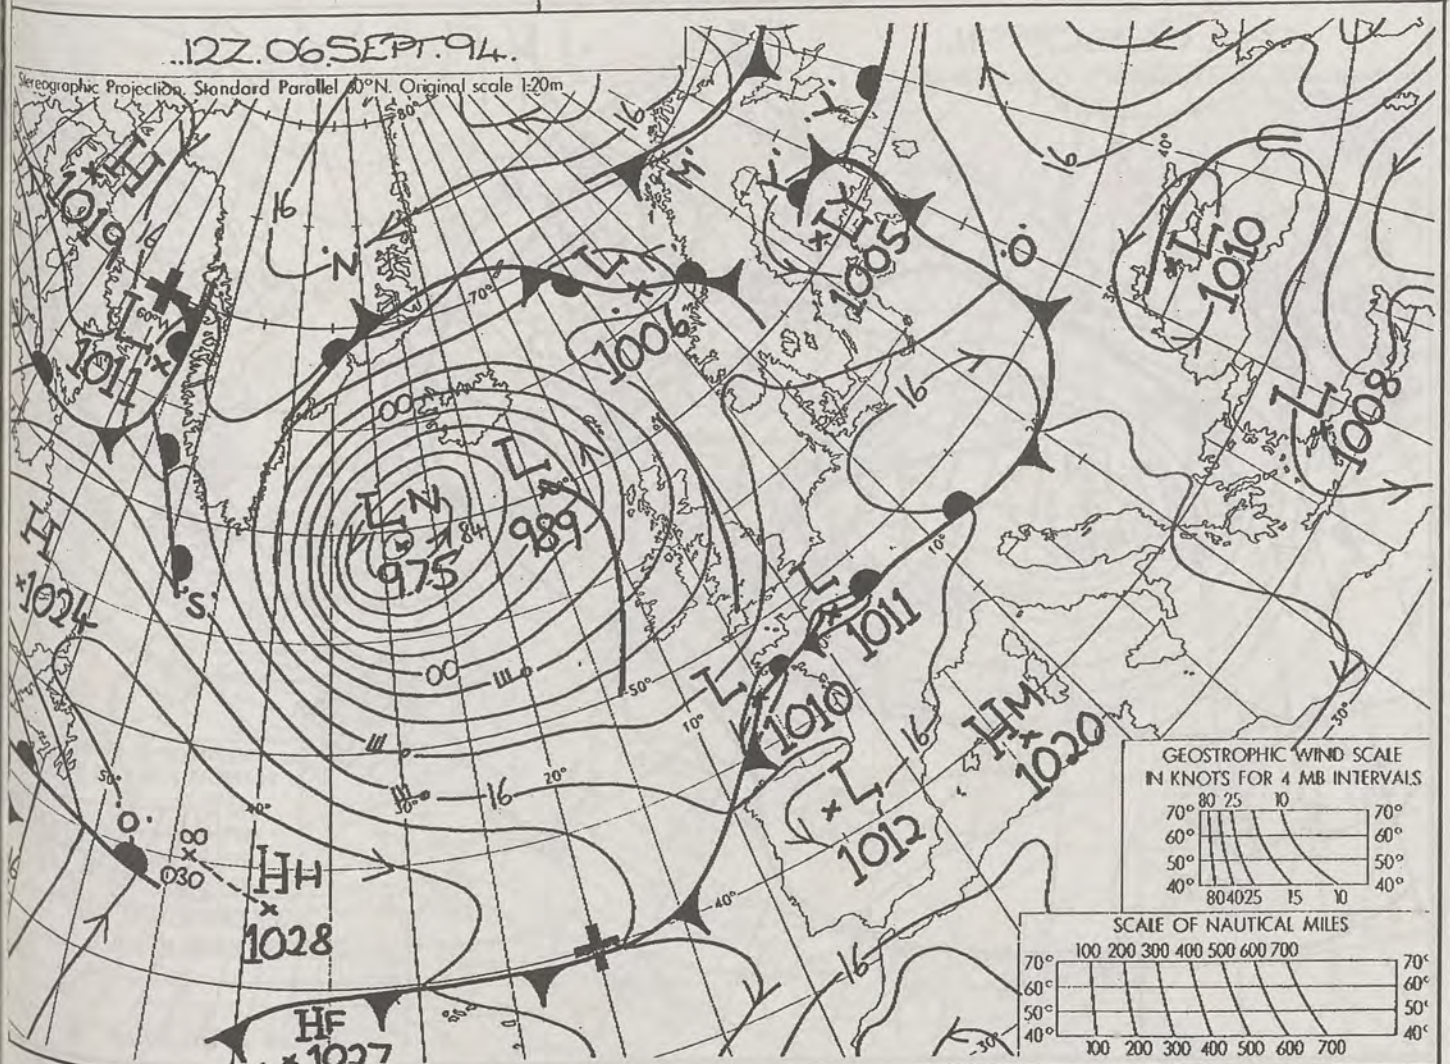 12Z.06.SEPT.94.
Stereographic Projection. Standard Parallel 60°N. Original scale 1:20m
80°
16
16
16
H
1019
16
'N'
'M'
'Y'
'X'
'O'
H Y
1005
L
1010
40°
L
60°W
1011
70°
L
1006
16
L
1008
00
L N
984
975
L
989
H
1024
'S'
10°
L
1011
00
50°
10°
L
1010
16
H M
1020
16
30°
20°
40°
50°
L
1012
'O'
00
030
H H
1028
40°
16
H F
1027
30°
30°
GEOSTROPHIC WIND SCALE
IN KNOTS FOR 4 MB INTERVALS
80 25 10
70° 70°
60° 60°
50° 50°
40° 40°
80 40 25 15 10
SCALE OF NAUTICAL MILES
100 200 300 400 500 600 700
70° 70°
60° 60°
50° 50°
40° 40°
100 200 300 400 500 600 700